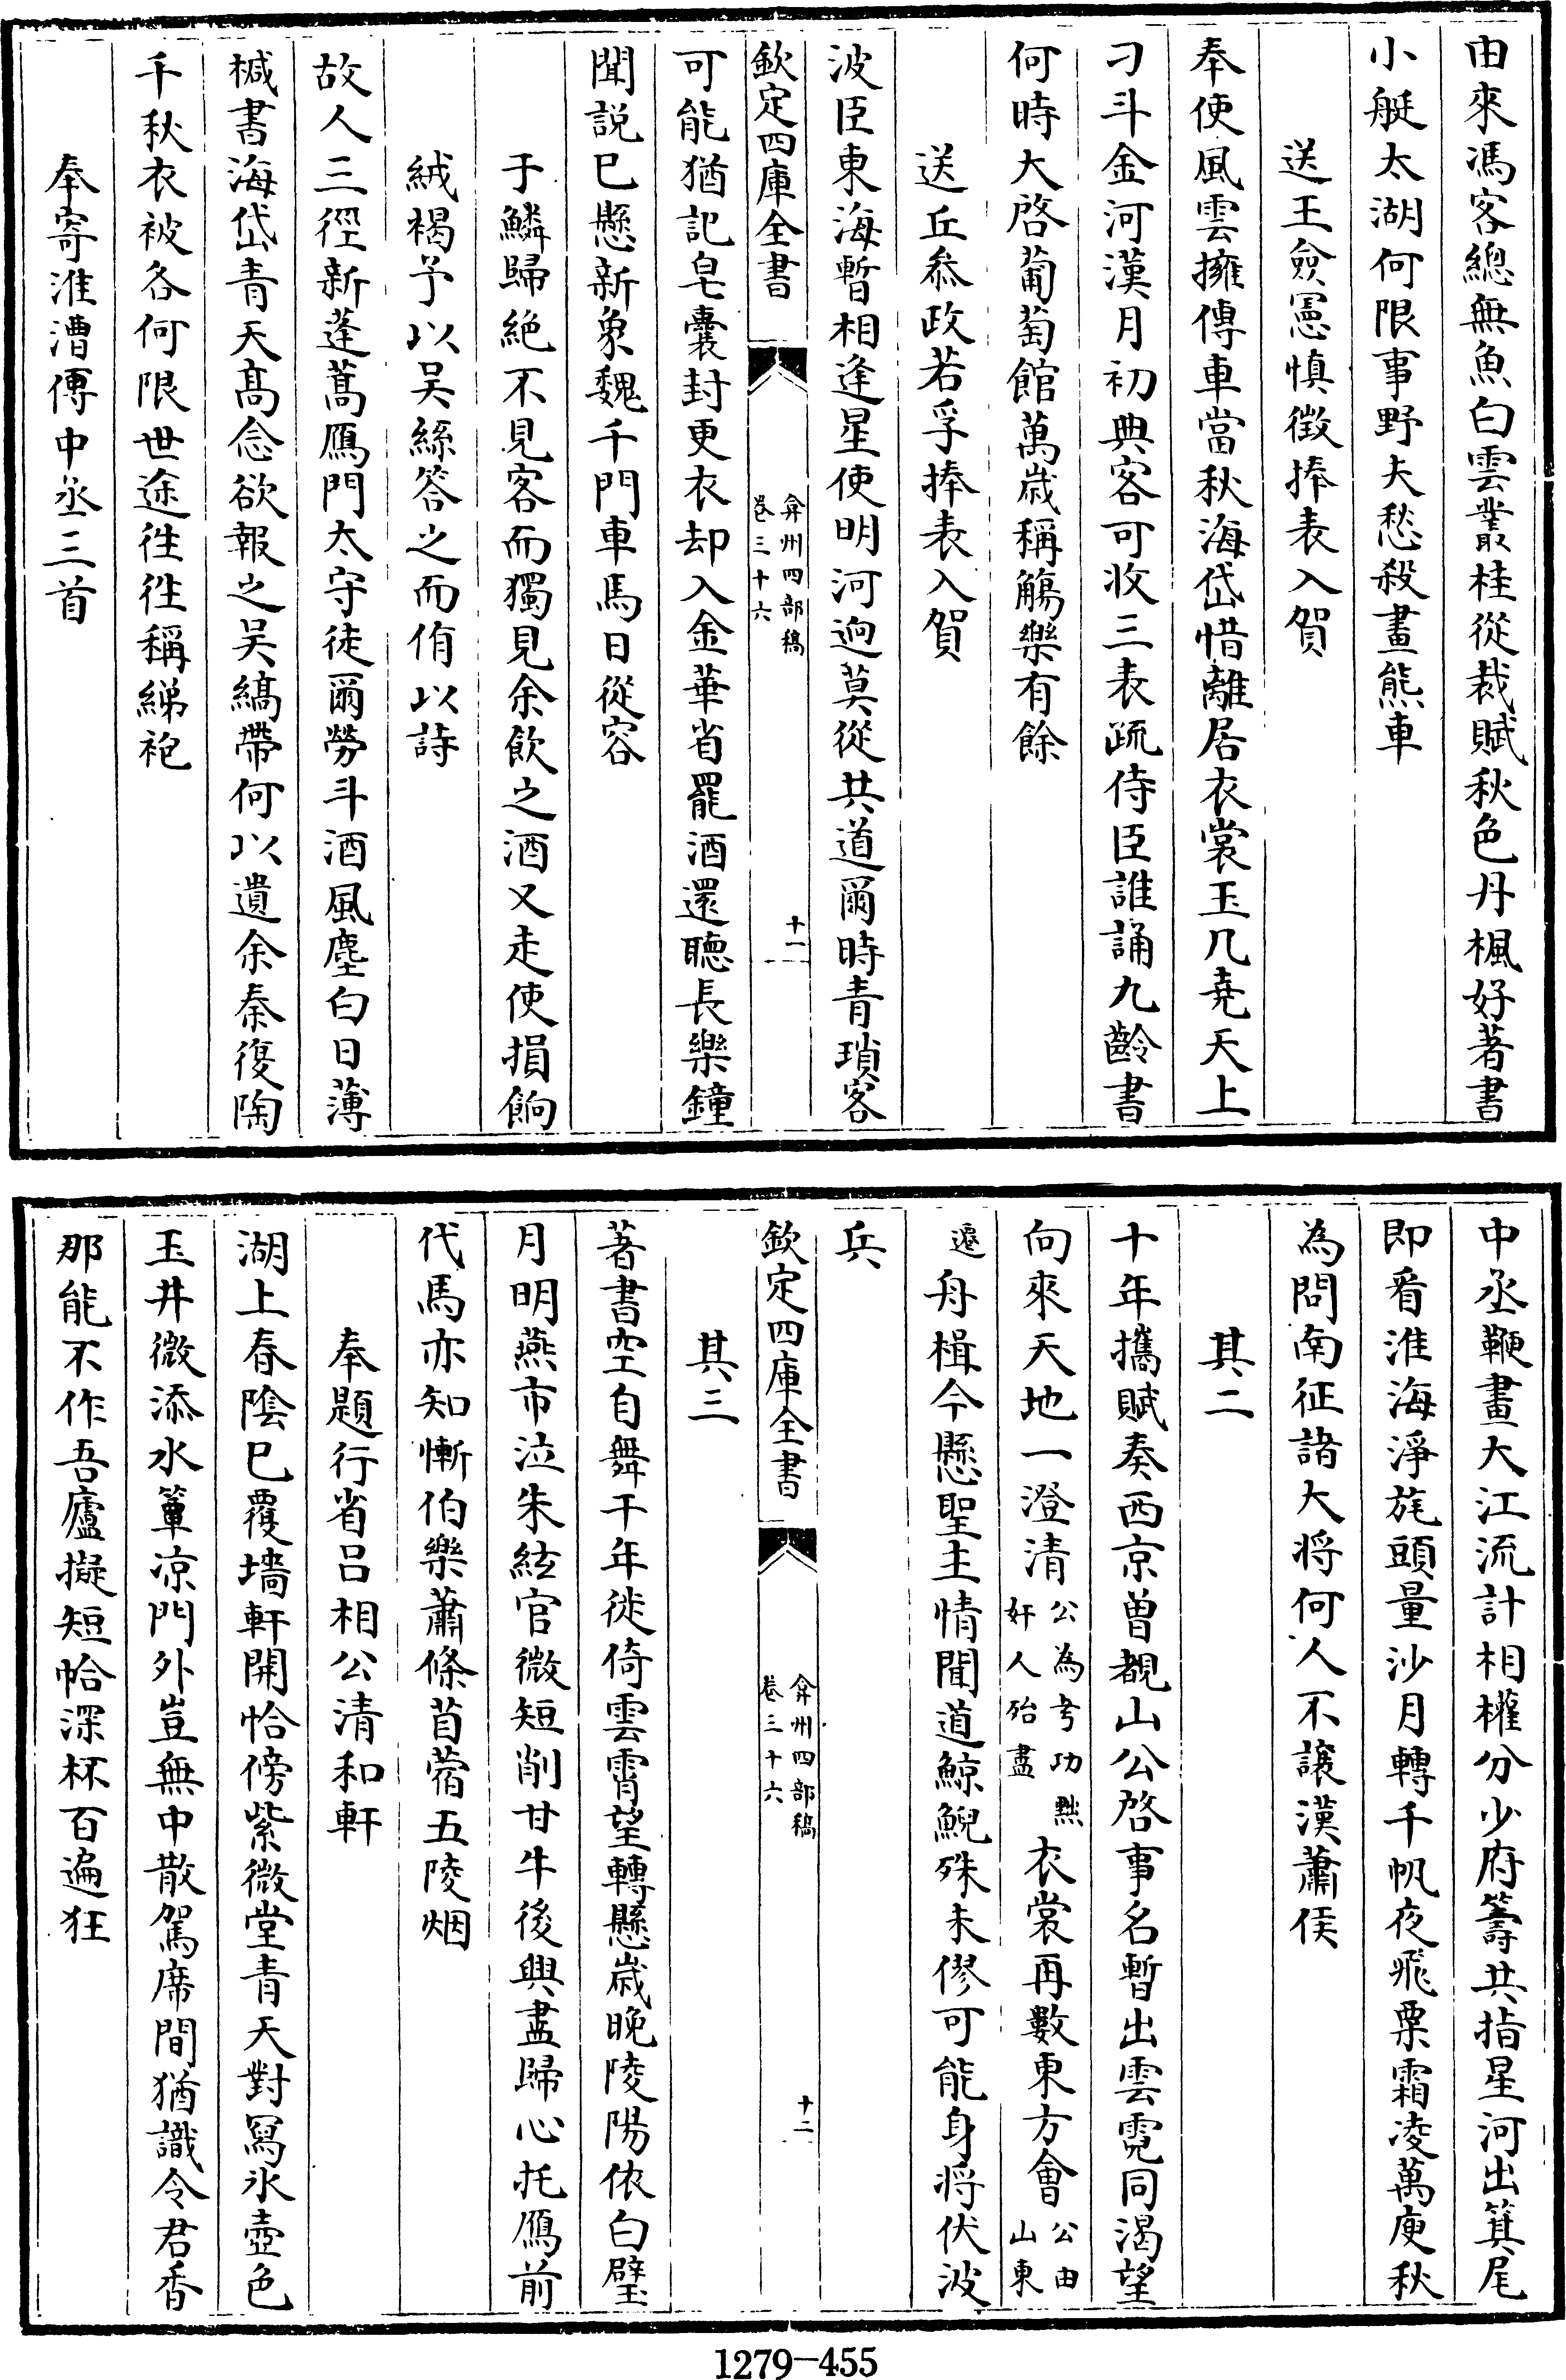 由來馮客總無魚白雲叢桂從裁賦秋色丹楓好著書
小艇太湖何限事野夫愁殺畫熊車
送王僉憲慎徵捧表入賀
奉使風雲擁傳車當秋海岱惜離居衣裳玉几堯天上
刁斗金河漢月初典客可收三表疏侍臣誰誦九齡書
何時大啓葡萄館萬歳稱觴樂有餘
送丘叅政若孚捧表入賀
波臣東海暫相逢星使明河逈莫從共道爾時青瑣客
欽定四庫全書
弇州四部稿
卷三十六
十一
可能猶記皂囊封更衣却入金華省罷酒還聽長樂鐘
聞説已懸新象魏千門車馬日從容
于鱗歸絶不見客而獨見余飲之酒又走使損餉
絨褐予以吴絲答之而侑以詩
故人三徑新蓬蒿鴈門太守徒爾勞斗酒風塵白日薄
椷書海岱青天髙念欲報之吴縞帶何以遺余秦復陶
千秋衣被各何限世途徃徃稱綈袍
奉寄淮漕傅中丞三首
中丞鞭畫大江流計相權分少府籌共指星河出箕尾
即看淮海淨旄頭量沙月轉千帆夜飛粟霜凌萬庾秋
為問南征諸大将何人不讓漢蕭侯
其二
十年攜賦奏西京曽覩山公啓事名暫出雲霓同渴望
向來天地一澄清公為考功黜奸人殆盡衣裳再數東方會公由山東
遷舟楫今懸聖主情聞道鯨鯢殊未僇可能身将伏波
兵
欽定四庫全書
弇州四部稿
卷三十六
十二
其三
著書空自舞干年徙倚雲霄望轉懸歳晩陵陽依白璧
月明燕市泣朱絃官微短削甘牛後興盡歸心托鴈前
代馬亦知慚伯樂蕭條苜蓿五陵烟
奉題行省吕相公清和軒
湖上春陰已覆墻軒開恰傍紫微堂青天對冩氷壺色
玉井微添水簟凉門外豈無中散駕席間猶識令君香
那能不作吾廬擬短帢深杯百遍狂
1279-455